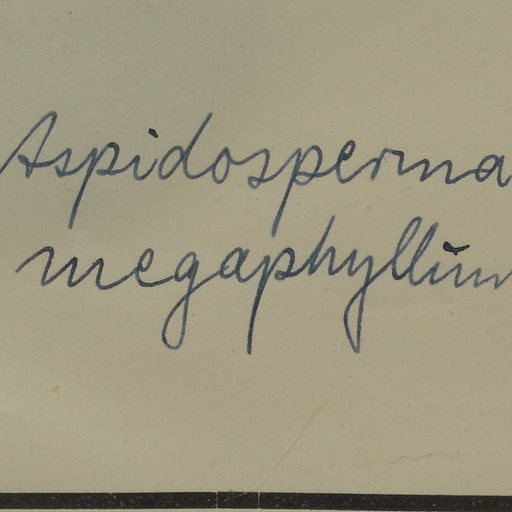 Aspidosperma
megaphyllum